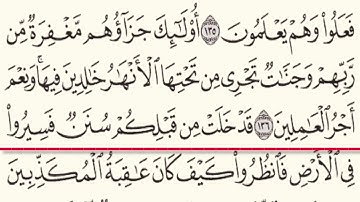 فَعَلُوا۟ وَهُمْ يَعْلَمُونَ ١٣٥ أُو۟لَٰٓئِكَ جَزَآؤُهُم مَّغْفِرَةٌ مِّن
رَّبِّهِمْ وَجَنَّٰتٌ تَجْرِى مِن تَحْتِهَا ٱلْأَنْهَٰرُ خَٰلِدِينَ فِيهَا ۚ وَنِعْمَ
أَجْرُ ٱلْعَٰمِلِينَ ١٣٦ قَدْ خَلَتْ مِن قَبْلِكُمْ سُنَنٌ فَسِيرُوا۟
فِى ٱلْأَرْضِ فَٱنظُرُوا۟ كَيْفَ كَانَ عَٰقِبَةُ ٱلْمُكَذِّبِينَ